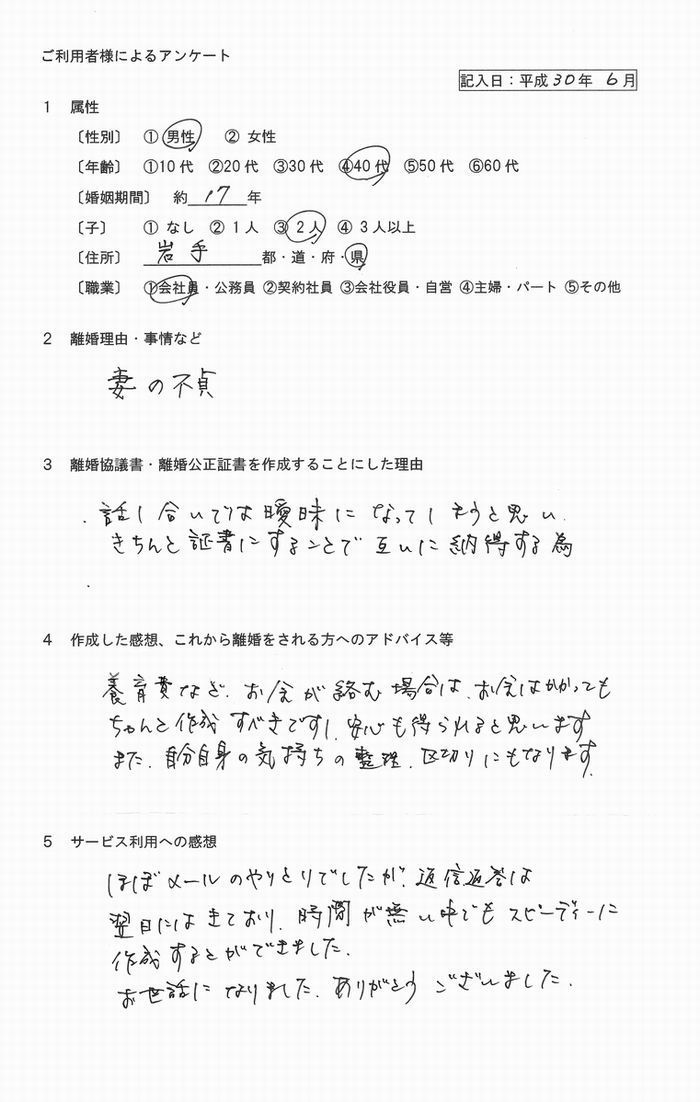 ご利用者様によるアンケート
記入日：平成 30年 6月
1 属性
〔性別〕 ① 男性 ② 女性
〔年齢〕 ①10代 ②20代 ③30代 ④40代 ⑤50代 ⑥60代
〔婚姻期間〕 約 17 年
〔子〕 ① なし ② 1人 ③ 2人 ④ 3人以上
〔住所〕 岩手 都・道・府・県
〔職業〕 ①会社員・公務員 ②契約社員 ③会社役員・自営 ④主婦・パート ⑤その他
2 離婚理由・事情など
妻の不貞
3 離婚協議書・離婚公正証書を作成することにした理由
話し合いでは曖昧になってしまうと思い、
きちんと証書にすることで互いに納得する為
4 作成した感想、これから離婚をされる方へのアドバイス等
養育費など、お金が絡む場合は、お金はかかっても
ちゃんと作成すべきですし、安心も得られると思います
また、自分自身の気持ちの整理、区切りにもなります。
5 サービス利用への感想
ほぼメールのやりとりでしたが、返信返答は
翌日にはきており、時間が無い中でもスピーディーに
作成するとができました。
お世話になりました。ありがとうございました。